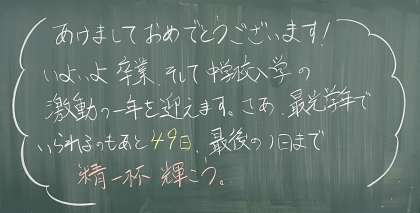 あけましておめでとうございます!
いよいよ卒業、そして中学校入学の
激動の一年を迎えます。さあ、最高学年で
いられるのもあと49日、最後の1日まで
精一杯 輝こう。